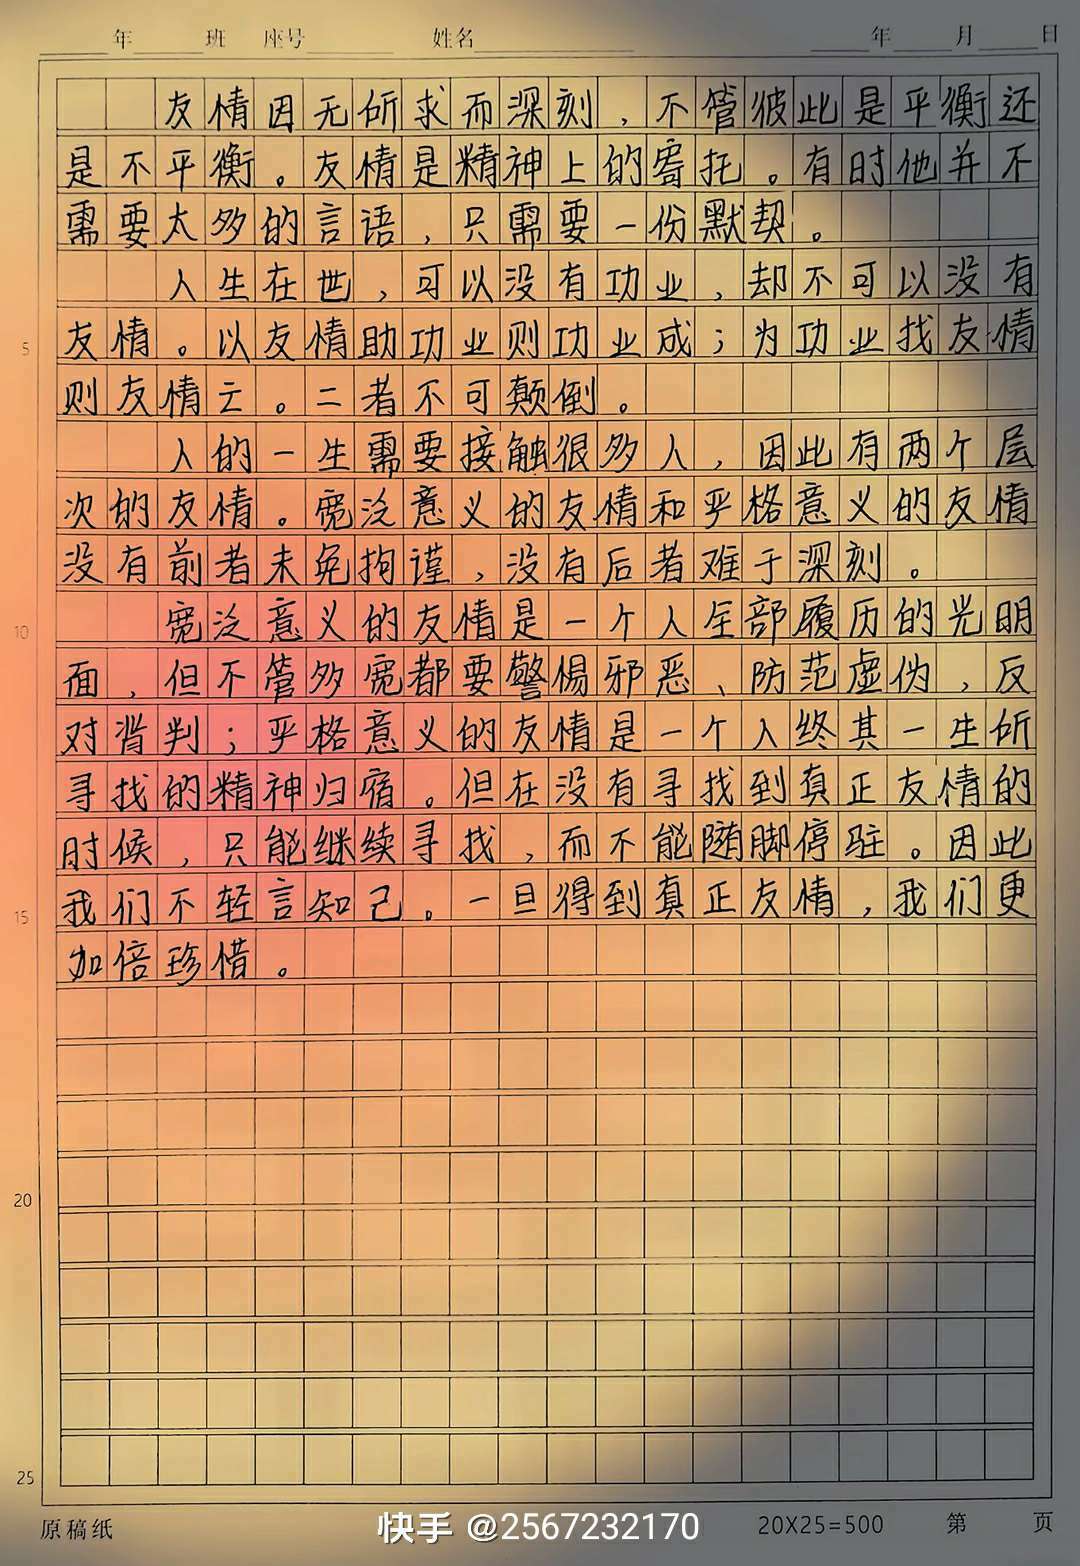 年 班 座号 姓名 年 月 日
友情因无所求而深刻，不管彼此是平衡还
是不平衡。友情是精神上的寄托。有时他并不
需要太多的言语，只需要一份默契。
人生在世，可以没有功业，却不可以没有
5 友情。以友情助功业则功业成；为功业找友情
则友情亡。二者不可颠倒。
人的一生需要接触很多人，因此有两个层
次的友情。宽泛意义的友情和严格意义的友情
没有前者未免拘谨，没有后者难于深刻。
10 宽泛意义的友情是一个人全部履历的光明
面，但不管多宽都要警惕邪恶、防范虚伪，反
对背判；严格意义的友情是一个人终其一生所
寻找的精神归宿。但在没有寻找到真正友情的
时候，只能继续寻找，而不能随脚停驻。因此
15 我们不轻言知己。一旦得到真正友情，我们更
加倍珍惜。
20
25
原稿纸 快手 @2567232170 20X25=500 第 页